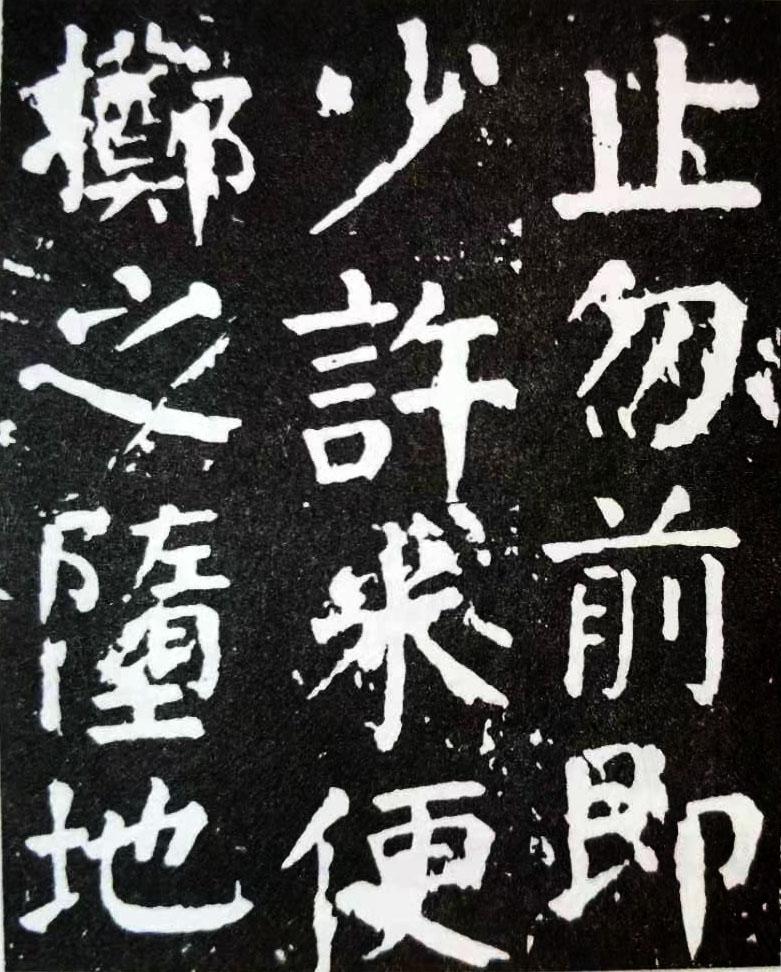 止勿前即
少許米便
擲之墮地